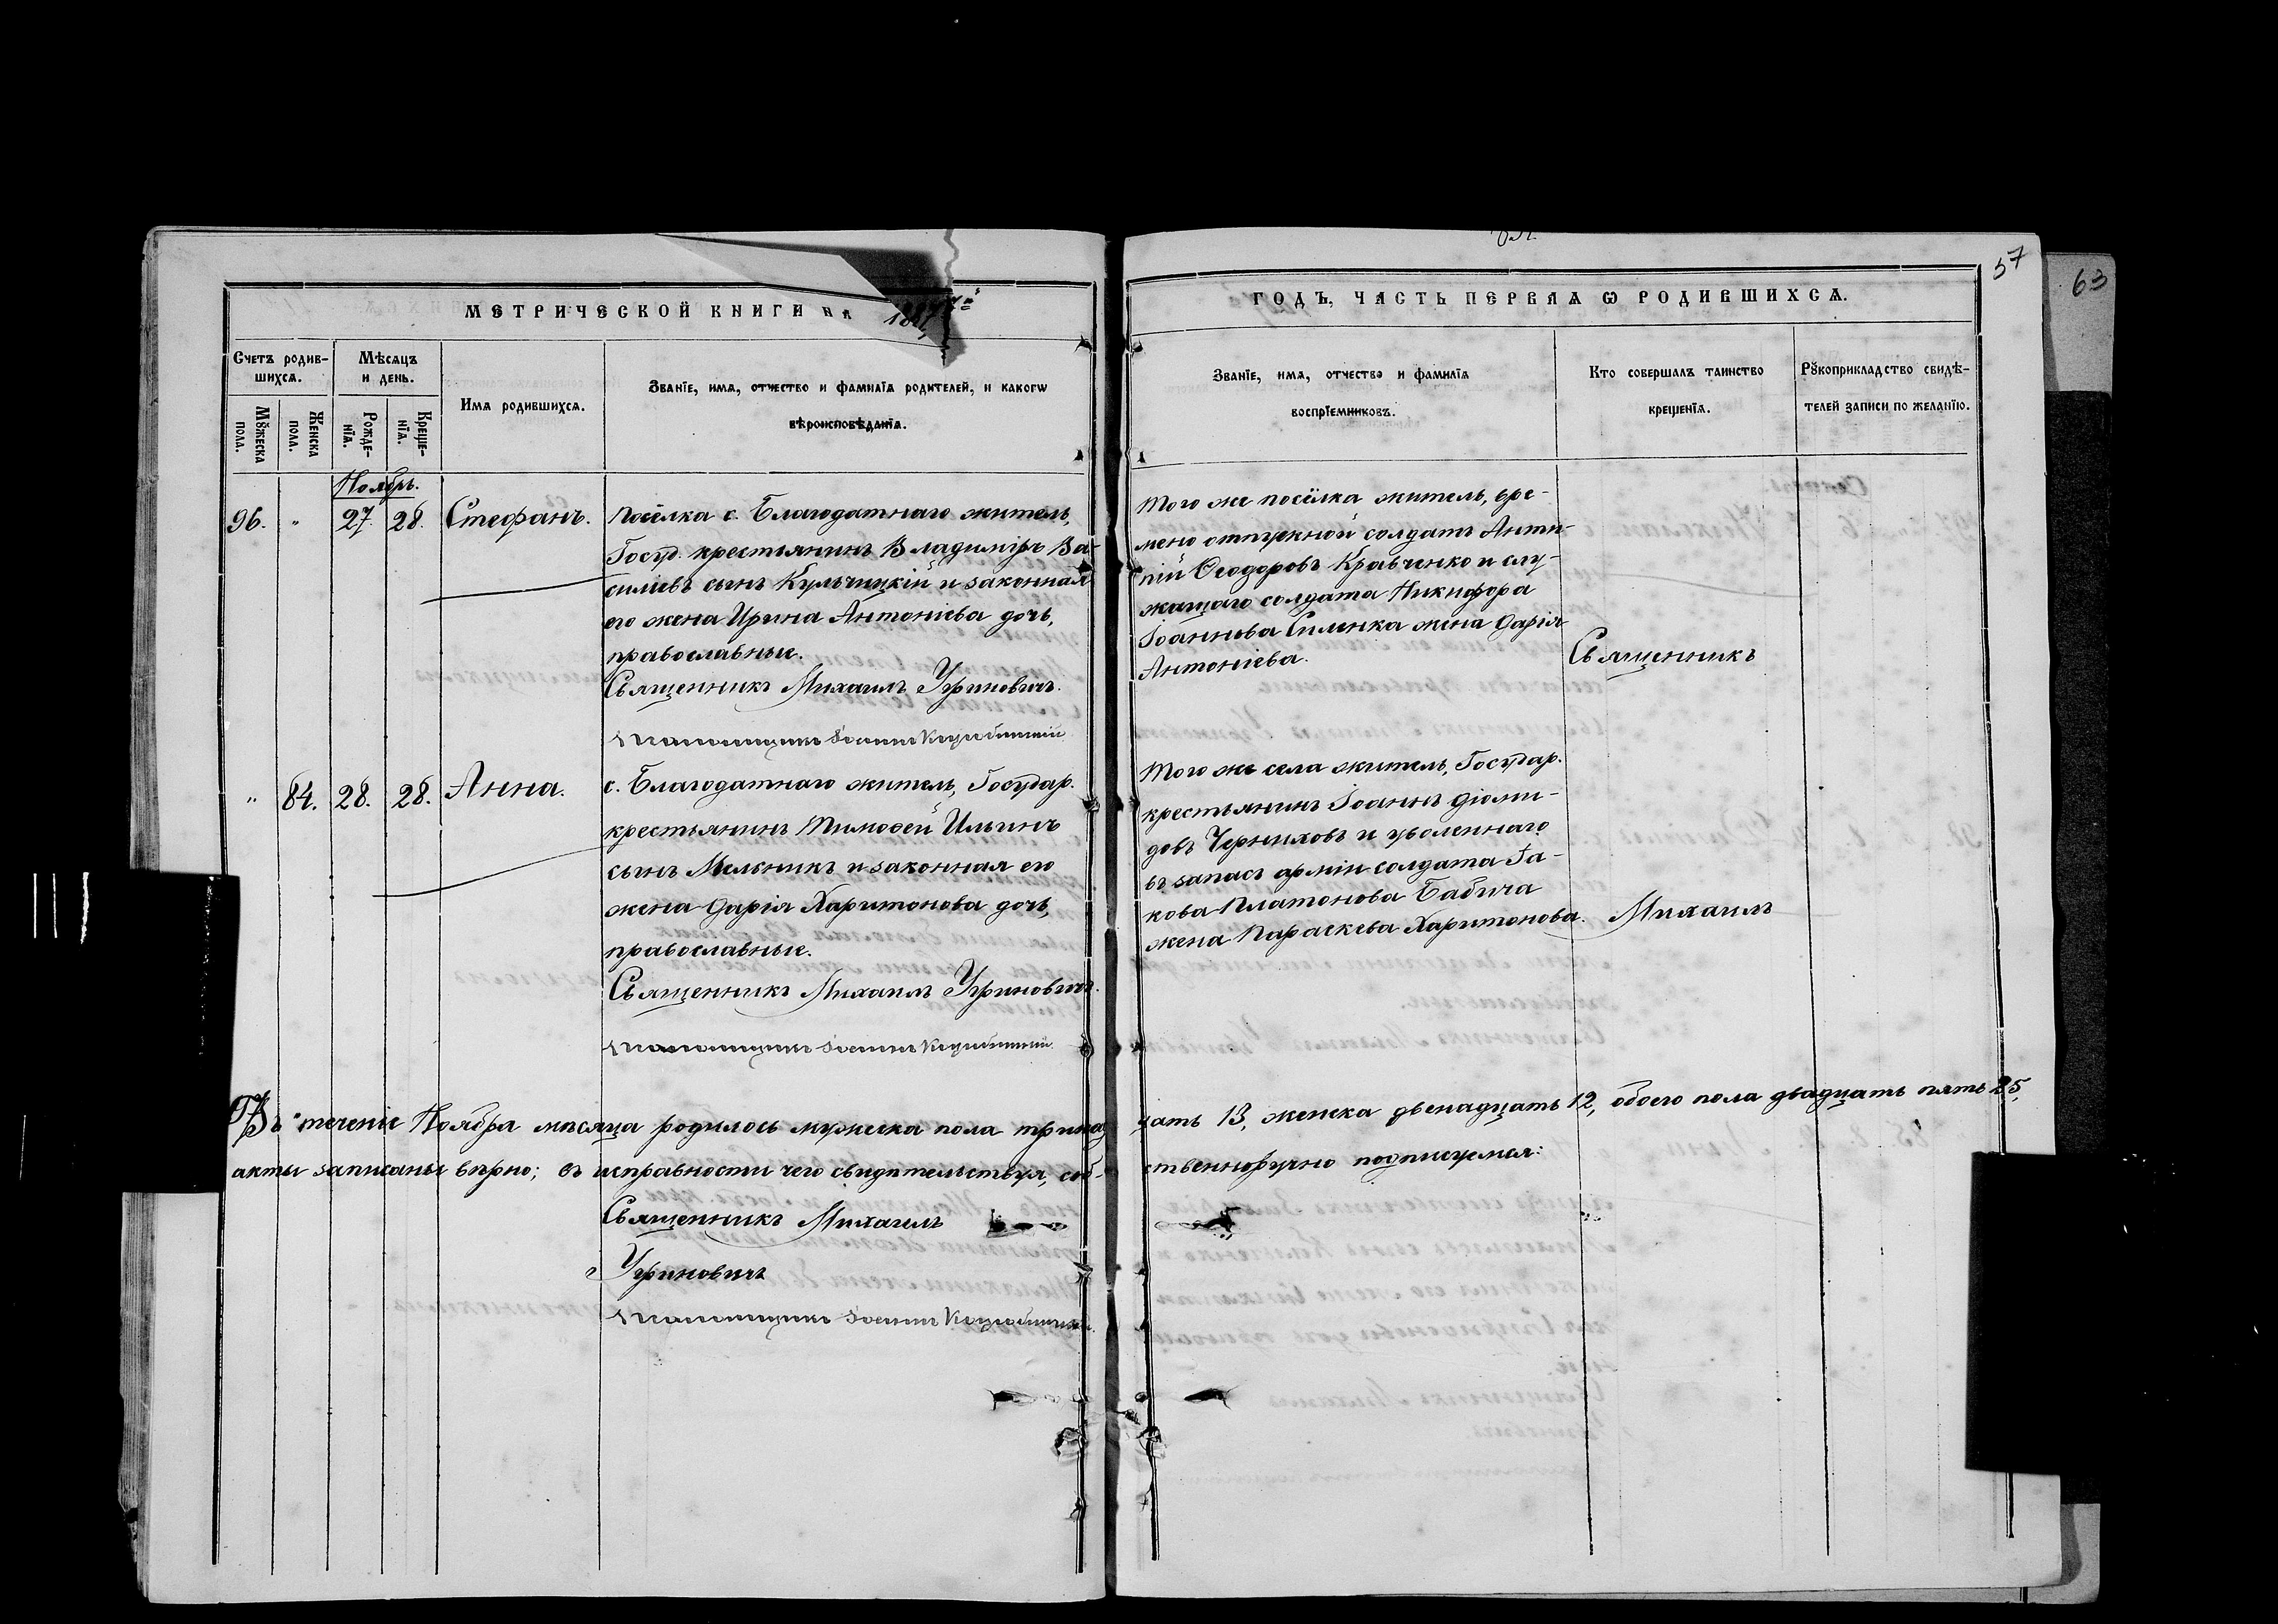 57
63
МЕТРИЧЕСКОЙ КНИГИ НА
ГОДЪ, ЧАСТЬ ПЕРВАѦ Ѡ РОДИВШИХСѦ.
Счетъ родив-
шихсѧ.
Мꙋжеска
пола.
Женска
пола.
Мѣсѧцъ
и день.
Рожде-
нїѧ.
Креще-
нїѧ.
Имѧ родившихсѧ.
Званїе, имѧ, отчество и фамилїѧ родителей, и какогѡ
вѣроисповѣданїѧ.
Званїе, имѧ, отчество и фамилїѧ
воспрїемниковъ.
Кто совершалъ таинство
крещенїѧ.
Рꙋкоприкладство свидѣ-
телей записи по желанїю.
Ноябрь.
96. " 27. 28. Стефанъ.
Посёлка с. Благодатнаго житель,
Госуд. крестьянинъ Владиміръ Ва-
силиевъ сынъ Кульчицкій и законная
его жена Ирина Антоніева дочь,
православные.
Священникъ Михаилъ Угриновичъ.
Псаломщикъ
Того же посёлка житель, вре-
мено отпускной солдатъ Анти-
пій Ѳеодоровъ Кравченко и слу-
жащаго солдата Никифора
Іоаннова Силенка жена Дарія
Антоніева.
Священникъ
" 84. 28. 28. Анна.
с. Благодатнаго житель, Государ.
крестьянинъ Тимоѳей Ильинъ
сынъ Мельникъ и законная его
жена Дарія Харитонова дочь,
православные.
Священникъ Михаилъ Угриновичъ.
Псаломщикъ
Того же села житель, Государ.
крестьянинъ Іоаннъ Діоми-
довъ Черниховъ и уволеннаго
въ запасъ арміи солдата Іа-
кова Платонова Бабича
жена Параскева Харитонова.
Михаилъ
Въ теченіе Ноября мѣсяца родилось мужеска пола тринад
цать 13, женска двенадцать 12, обоего пола двадцать пять 25,
акты записаны вѣрно; въ исправности чего свидѣтельствуя, соб-
ственноручно подписуемся:
Священникъ Михаилъ
Угриновичъ
Псаломщикъ